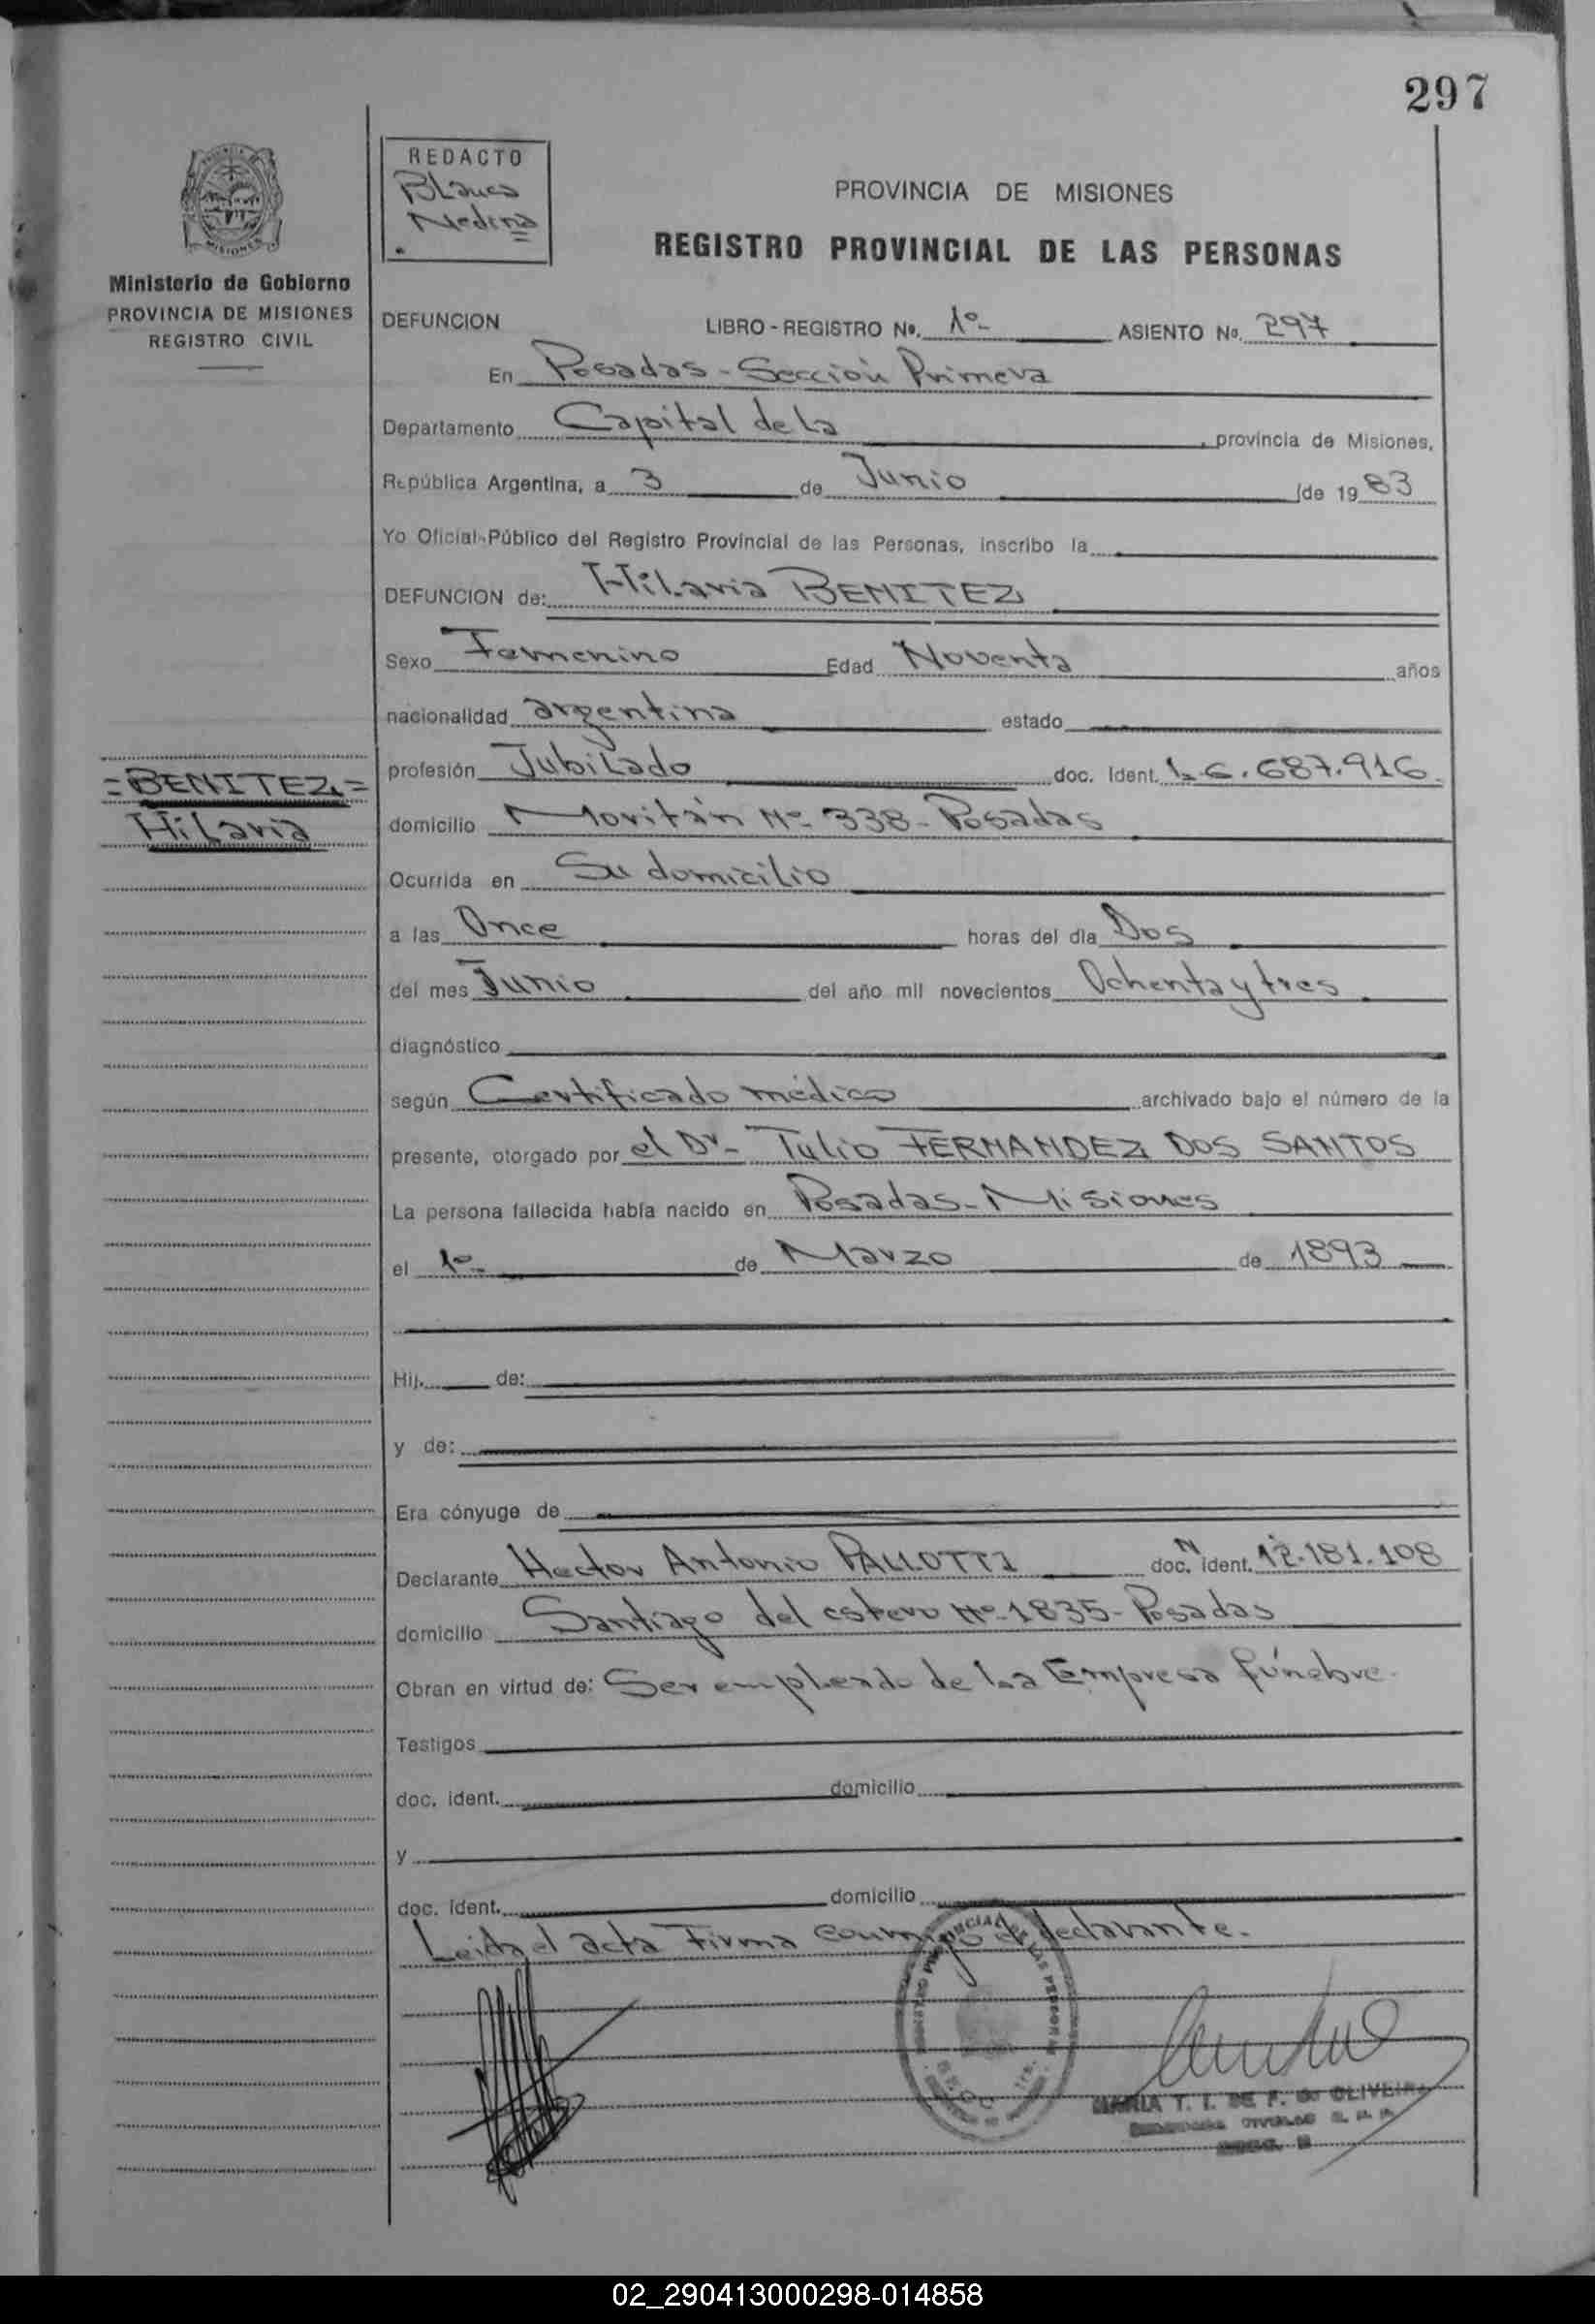 297
REDACTO
Blanca
Medina
PROVINCIA DE MISIONES
REGISTRO PROVINCIAL DE LAS PERSONAS
MISIONES
Ministerio de Gobierno
PROVINCIA DE MISIONES
REGISTRO CIVIL
DEFUNCION LIBRO - REGISTRO Nº. 1º- ASIENTO Nº. 297
En Posadas - Sección Primera
Departamento Capital de La , provincia de Misiones,
República Argentina, a 3 de Junio de 19 83
Yo Oficial Público del Registro Provincial de las Personas, inscribo la
DEFUNCION de: Hilaria BENITEZ
Sexo Femenino Edad Noventa años
nacionalidad argentina estado
=BENITEZ=
Hilaria
profesión Jubilado doc. Ident. L.C. 6.687.916
domicilio Moritán Nº 338 - Posadas
Ocurrida en Su domicilio
a las Once horas del día Dos
del mes Junio del año mil novecientos Ochenta y tres
diagnóstico
según Certificado médico archivado bajo el número de la
presente, otorgado por el Dr- Tulio FERNANDEZ DOS SANTOS
La persona fallecida había nacido en Posadas - Misiones
el 1º- de Marzo de 1893
Hij. de:
y de:
Era cónyuge de
Declarante Hector Antonio PALLOTTI doc. ident. 12.181.108
domicilio Santiago del estero Nº 1835 - Posadas
Obran en virtud de: Ser empleado de la Empresa fúnebre.
Testigos
doc. ident. domicilio
y
doc. ident. domicilio
Leida el acta Firma conmigo el declarante.
MARIA T. I. DE F. de OLIVEIRA
02_290413000298-014858